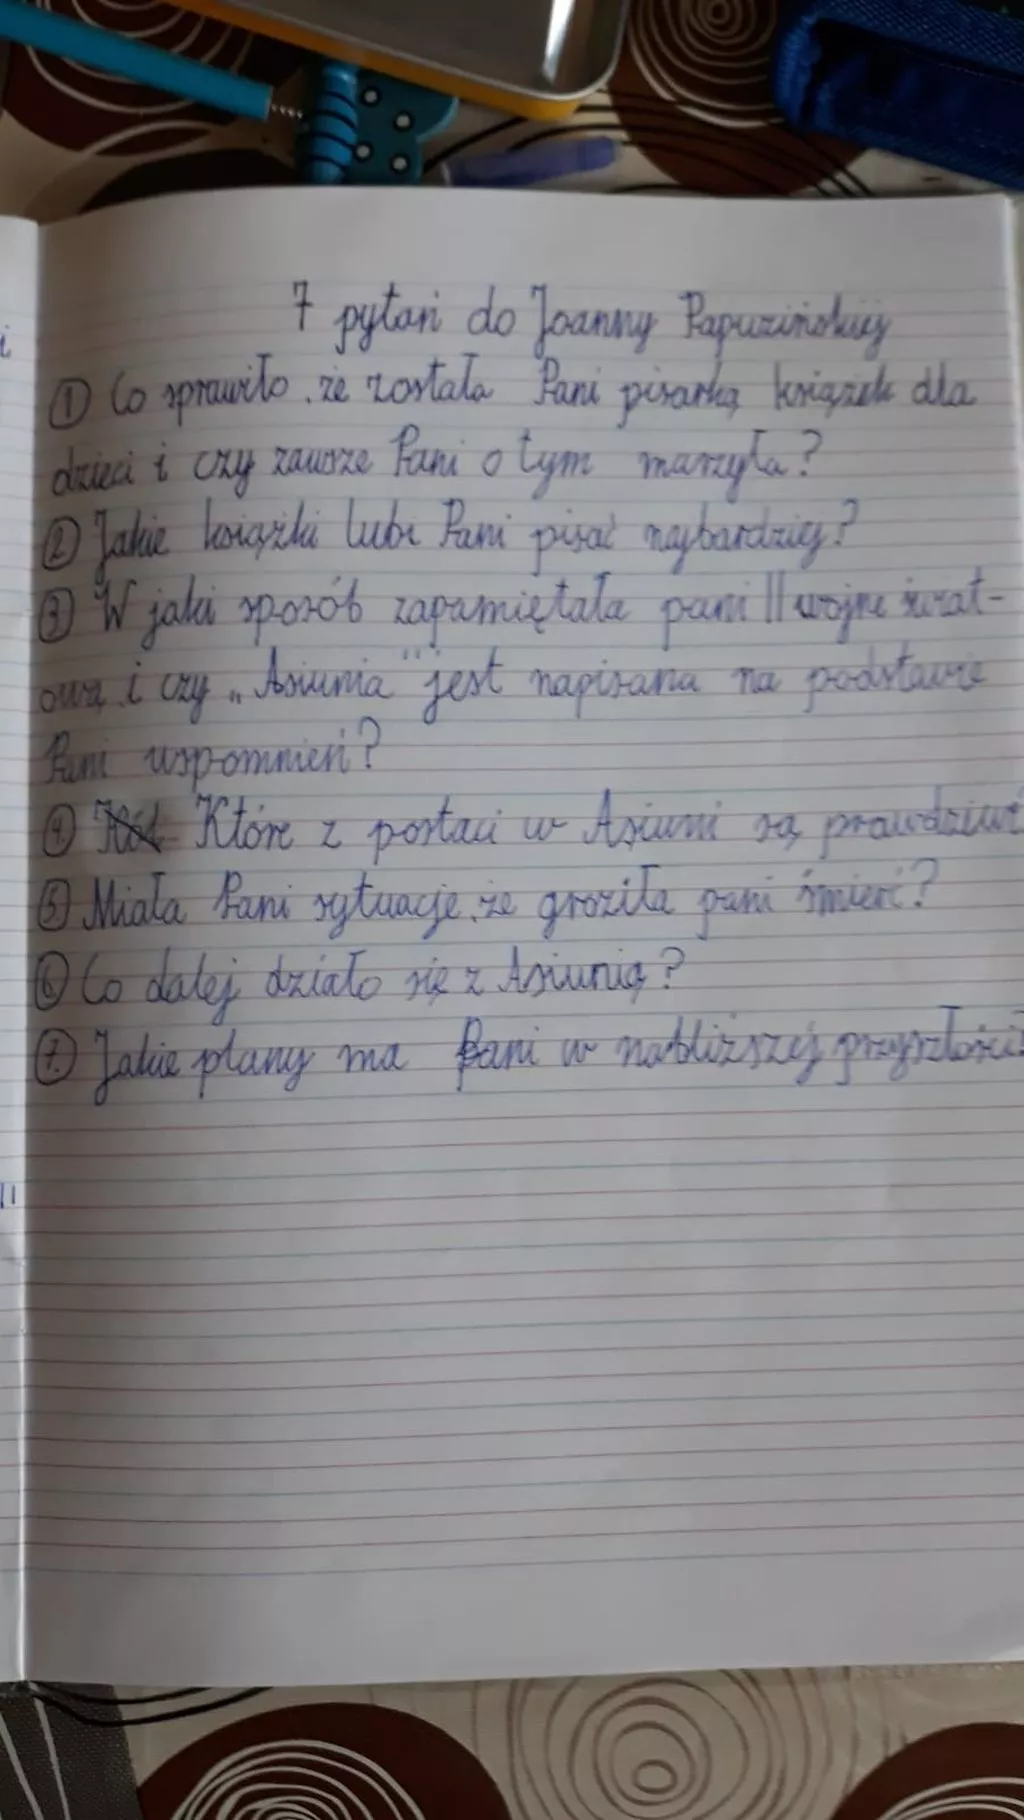 7 pytań do Joanny Papuzińskiej
① Co sprawiło, że została Pani pisarką książek dla
dzieci i czy zawsze Pani o tym marzyła?
② Jakie książki lubi Pani pisać najbardziej?
③ W jaki sposób zapamiętała pani II wojnę świat-
ową i czy „Asiunia" jest napisana na podstawie
Pani wspomnień?
④ Które z postaci w Asiuni są prawdziwe
⑤ Miała Pani sytuację, że groziła pani śmierć?
⑥ Co dalej działo się z Asiunią?
⑦. Jakie plany ma Pani w nabliższej przyszłości?
i
11